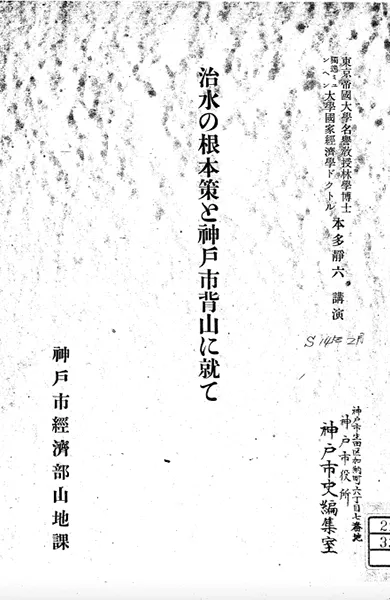 東京帝國大學名譽敎授林學博士
獨逸ミュンヘン大學國家經濟學ドクトル
本多靜六講演
治水の根本策と神戶市背山に就て
神戶市經濟部山地課
神戸市生田区加納町六丁目七番地
神戸市役所
神戸市史編集室